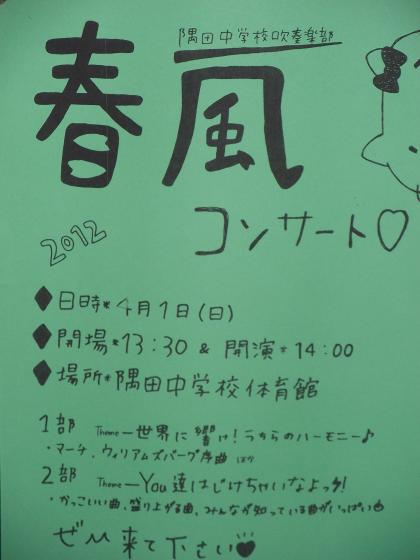 隅田中学校吹奏楽部
春風
コンサート♡
2012
◆日時*4月1日(日)
◆開場*13:30 & 開演*14:00
◆場所*隅田中学校体育館
1部 Theme―世界に響け!うちらのハーモニー♪
・マーチ、ウィリアムズバーグ序曲 ほか
2部 Theme―You達はじけちゃいなよっ!
・かっこいい曲、盛り上がる曲、みんなが知っている曲がいっぱい
ぜひ来て下さい♥